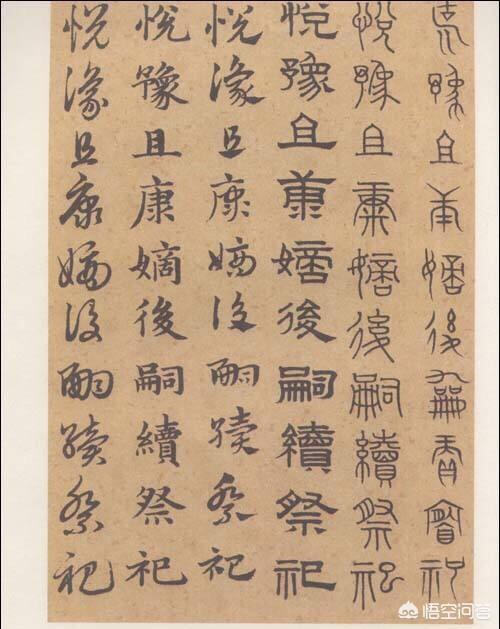 悅豫且康嫡後嗣續祭祀
悅豫且康嫡後嗣續祭祀
悅豫且康嫡後嗣續祭祀
悅豫且康嫡後嗣續祭祀
悅豫且康嫡後嗣續祭祀
悅豫且康嫡後嗣續祭祀
悟空问答